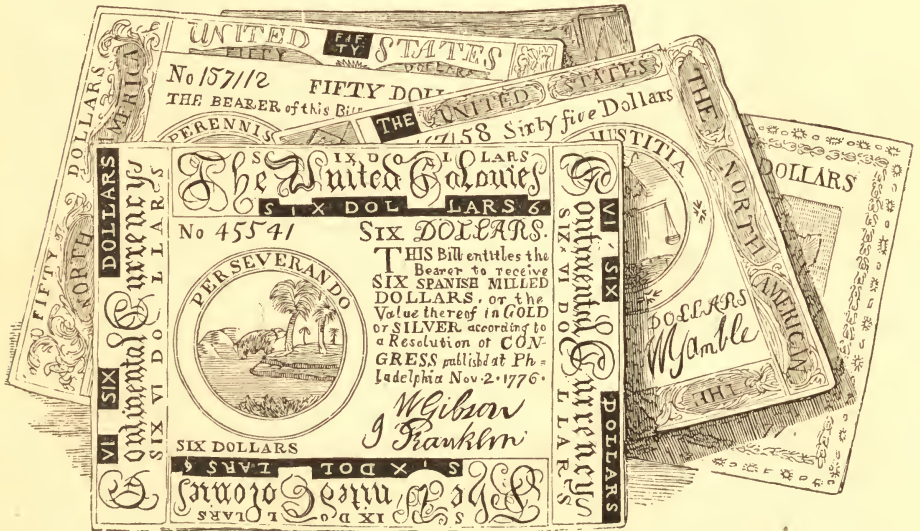 UNITED FIFTY STATES
FIFTY DOLLARS
No 157112 FIFTY DOLL
THE BEARER of this Bill
PERENNIS
FIFTY DOLLARS
NORTH AMERICA
THE UNITED STATES
THE NORTH AMERICAN
THE
58 Sixty five Dollars
JUSTITIA
DOLLARS
WGamble
DOLLARS
SIX DOLLARS
The United Colonies
SIX DOLLARS 6
No 45541 SIX DOLLARS.
PERSEVERANDO
THIS Bill entitles the
Bearer to receive
SIX SPANISH MILLED
DOLLARS, or the
Value thereof in GOLD
or SILVER according to
a Resolution of CON=
GRESS publishd at Ph=
ladelphia Nov·2·1776·
WGibson
J Franklin
SIX DOLLARS
VI SIX DOLLARS
Continental Currency
SIX VI DOLLARS
Continental Currency
SIX VI DOLLARS
VI SIX DOLLARS
SIX DOLLARS 6
The United Colonies
SIX DOLLARS